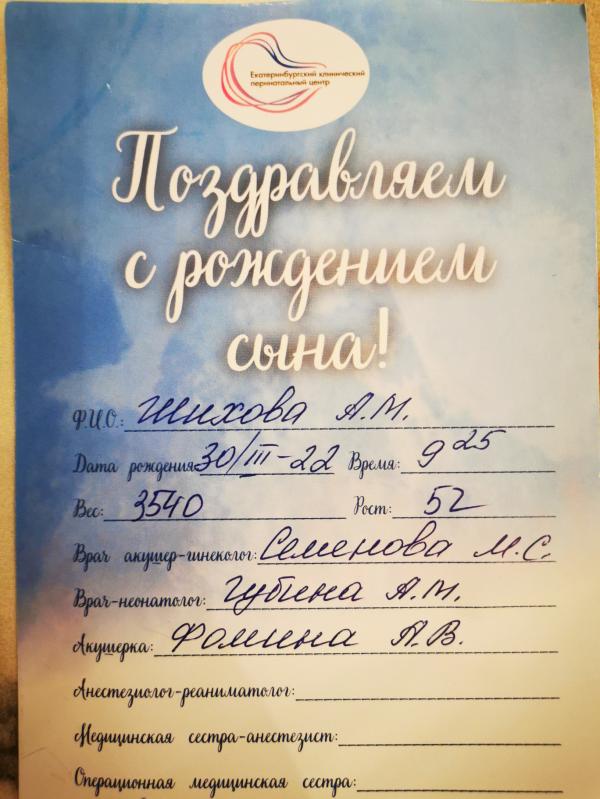 Екатеринбургский клинический
перинатальный центр
Поздравляем
с рождением
сына!
Ф.И.О.: Шихова А.М.
Дата рождения: 30/III-22 Время: 9 25
Вес: 3540 Рост: 52
Врач акушер-гинеколог: Семенова М.С.
Врач-неонатолог: Губина А.М.
Акушерка: Фомина А.В.
Анестезиолог-реаниматолог:
Медицинская сестра-анестезист:
Операционная медицинская сестра: